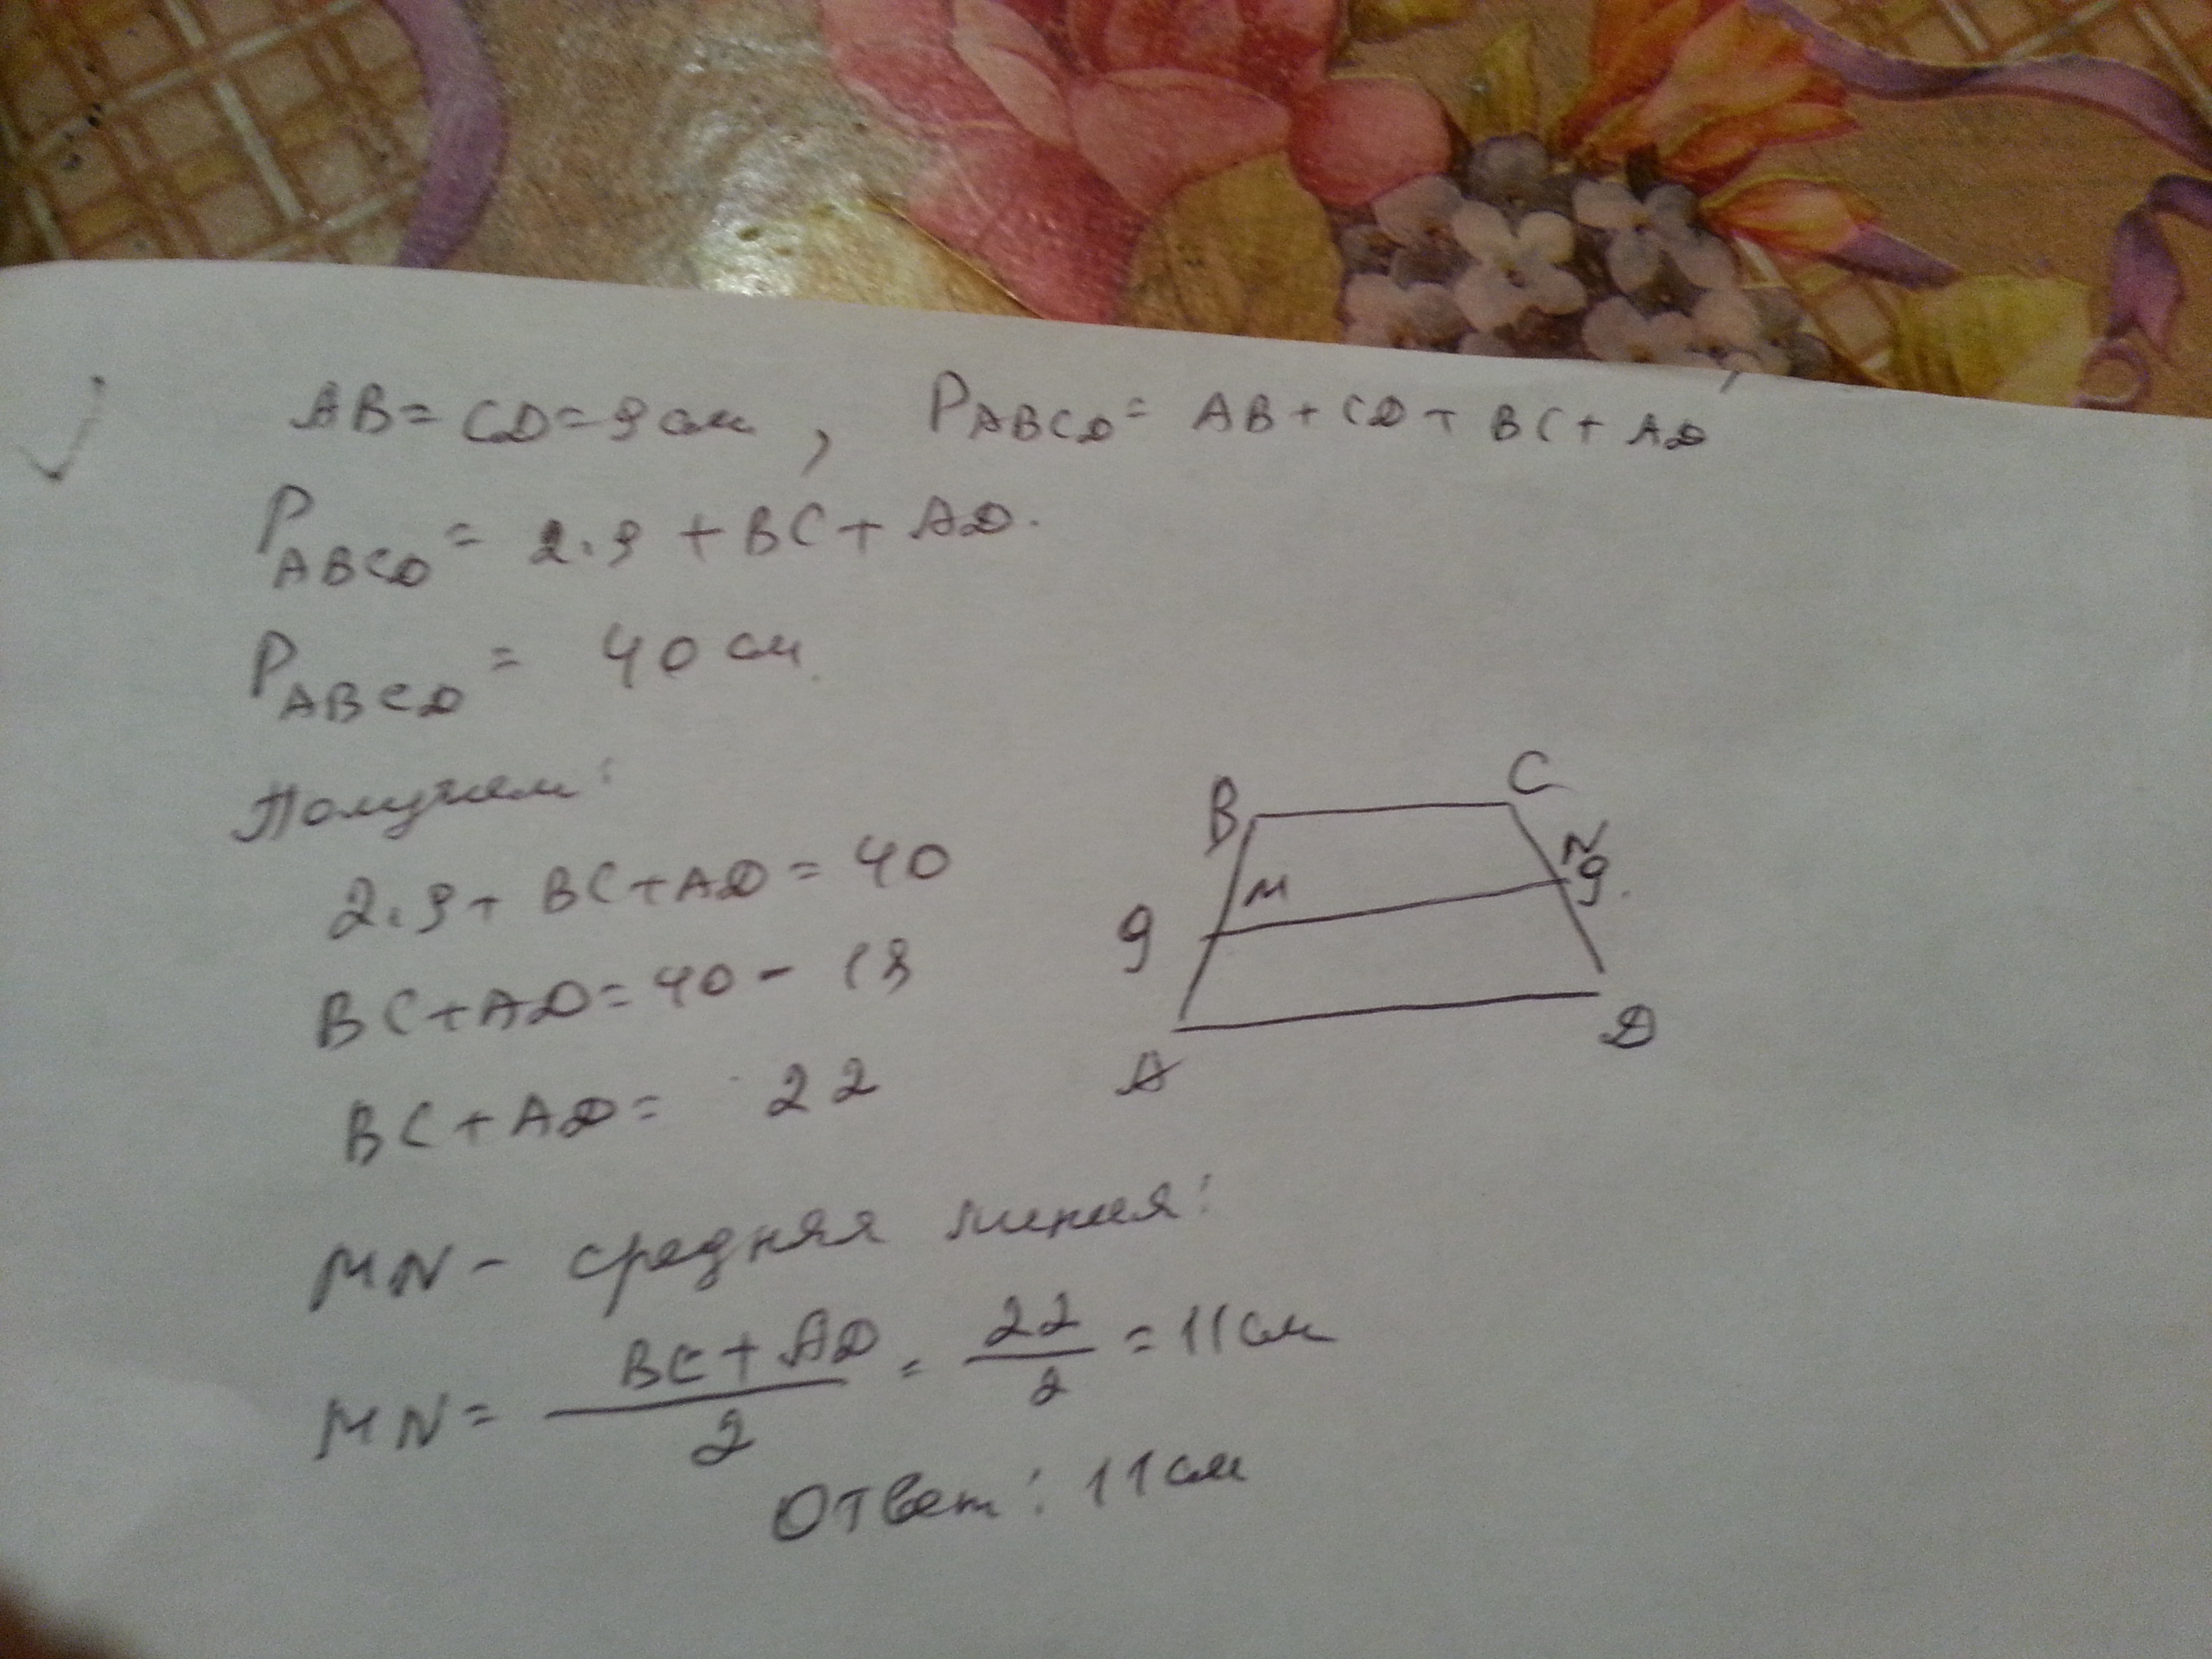 AB = CD = 9 см , P ABCD = AB + CD + BC + AD
P ABCD = 2.9 + BC + AD.
P ABCD = 40 см.
Получаем:
2.9 + BC + AD = 40
BC + AD = 40 - 18
BC + AD = 22
B C
M N
9 9.
A D
MN - средняя линия:
MN = BC + AD / 2 = 22 / 2 = 11 см
Ответ: 11 см